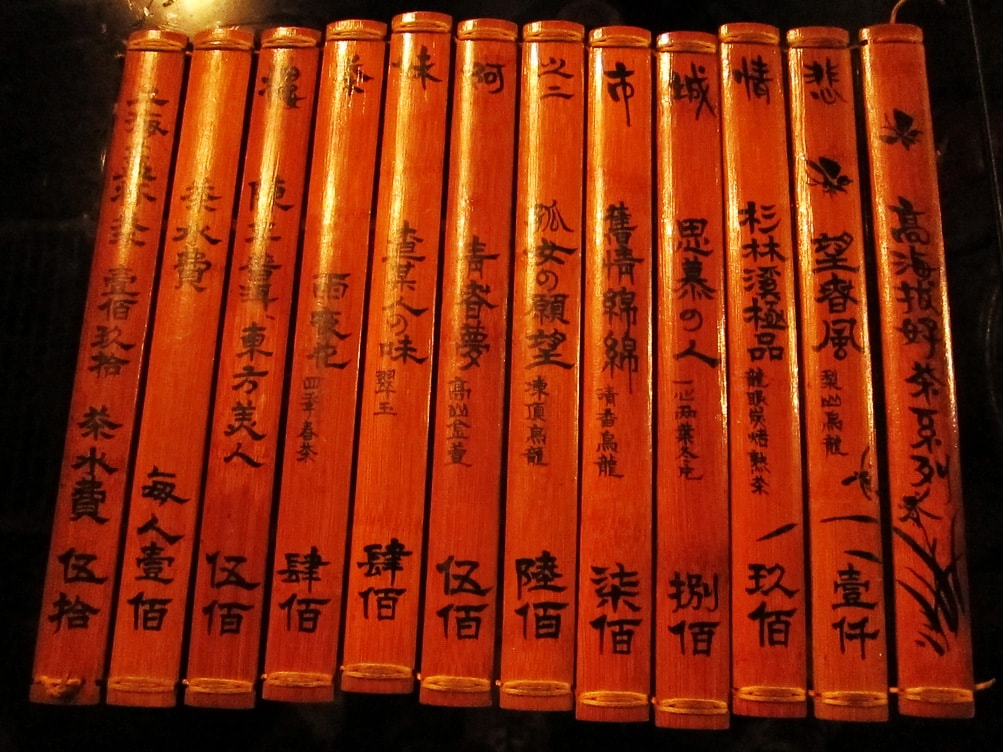 悲情城市之二阿妹茶樓
高海拔好茶系列
望春風 梨山烏龍 壹仟
杉林溪極品 龍眼炭焙熟茶 玖佰
思慕の人 一心兩葉冬片 捌佰
舊情綿綿 清香烏龍 柒佰
孤女の願望 凍頂烏龍 陸佰
青春夢 高山金萱 伍佰
查某人の味 翠玉 肆佰
雨夜花 四季春茶 肆佰
東方美人 伍佰
茶水費 每人壹佰
壹佰玖拾 茶水費 伍拾